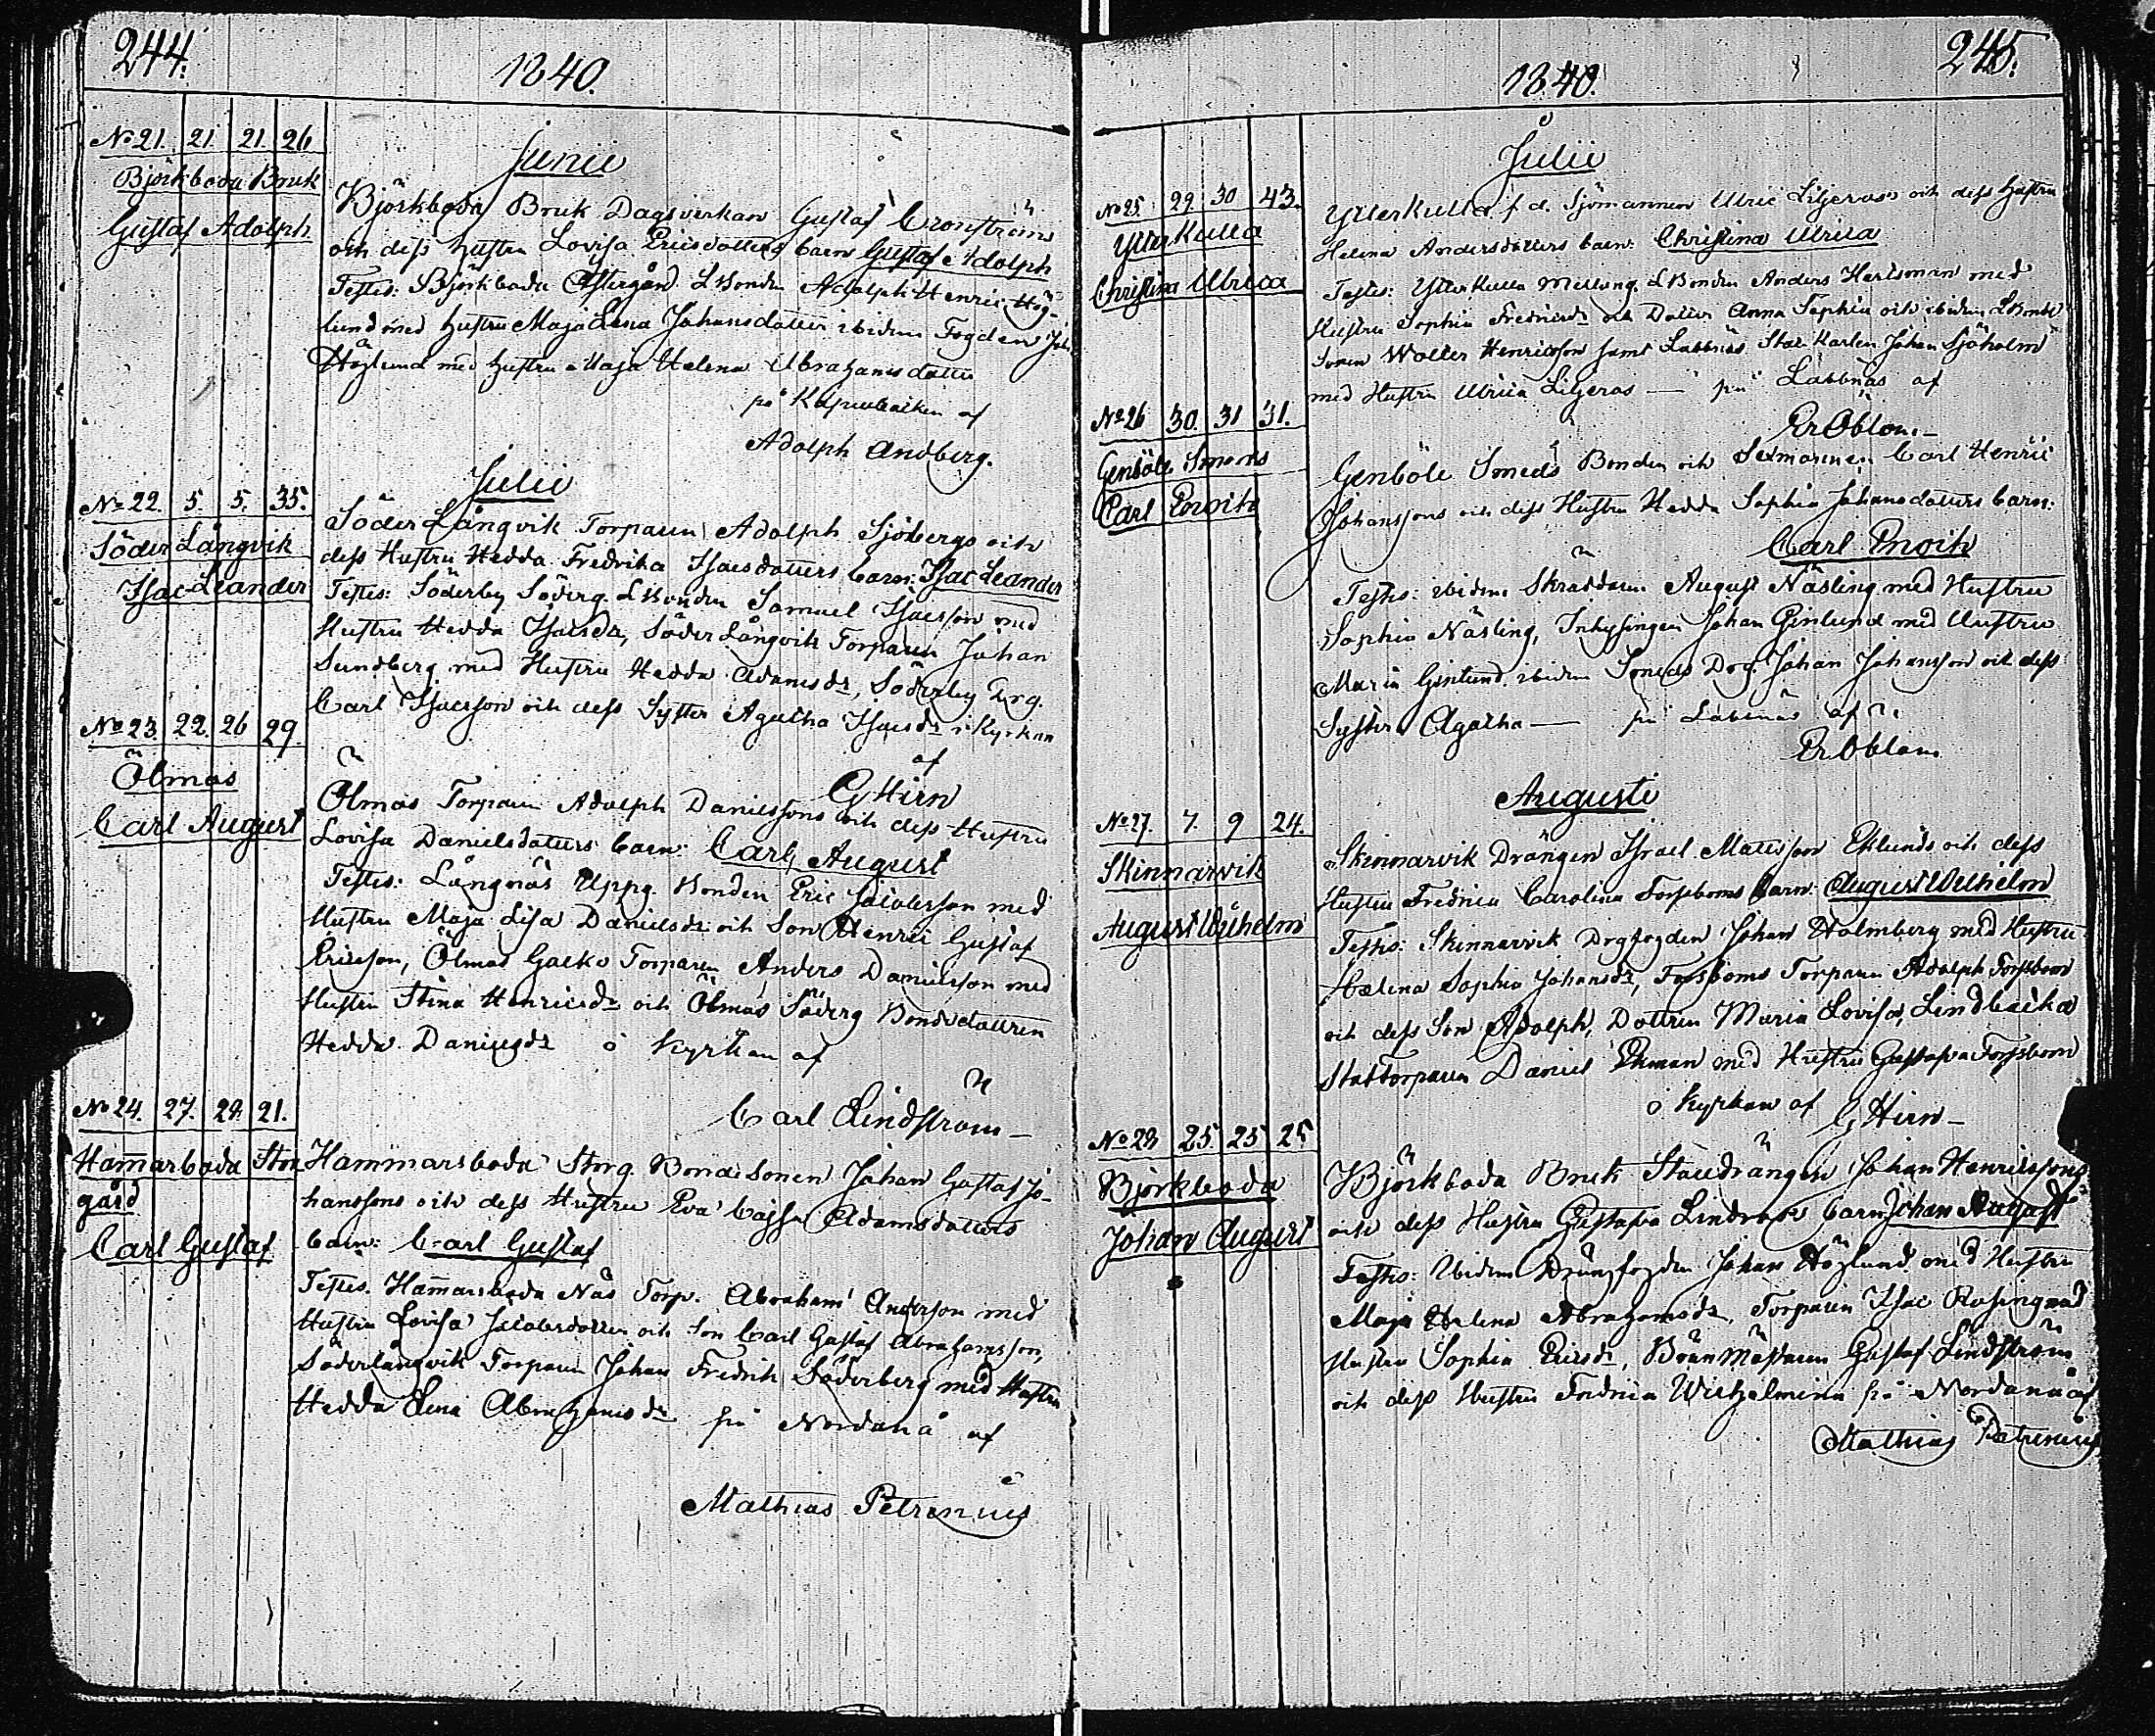 244.
1840.
No 21. 21. 21. 26
Björkboda Bruk
Gustaf Adolph
Junii
Björkboda Bruk Dagsverkarn Gustaf Cronströms
och dess hustru Lovisa Ericsdotters barn Gustaf Adolph
Testes: Björkboda Östergård LBonden Adolph Henric Hög-
lund med hustru Maja Lena Johansdotter ibidem Fogden Joh.
Höglund med hustru Maja Helena Abrahamsdotter
på af
Adolph Andberg.
Julii
No 22. 5. 5. 35.
Söder Långvik
Isac Leander
Söder Långvik Torparen Adolph Sjöbergs och
dess Hustru Hedda Fredrika Isacsdotters barn: Isac Leander
Testes: Söderby Söderg. LBonden Samuel Isacsson med
Hustru Hedda Isacsdr, Söder Långvik Torparen Johan
Sundberg med Hustru Hedda Adamsdr, Söderby Drg.
Carl Isacsson och dess Syster Agatha Isacsdr i Kyrkan
af
G Hirn
No 23. 22. 26 29.
Ölmos
Carl August
Ölmos Torparen Adolph Danielssons och dess Hustru
Lovisa Danielsdotters barn: Carl August
Testes: Långnäs Uppg. Bonden Eric Jacobsson med
Hustru Maja Lisa Danielsdr och Son Henric Gustaf
Ericsson, Ölmos Torparen Anders Danielsson med
Hustru Stina Henricsdr och Ölmos Söderg Bondedottren
Hedda Danielsdr i Kyrkan af
Carl Lindström
No 24. 27. 28. 21.
Hammarboda Stor
gård
Carl Gustaf
Hammarsboda Storg. Bondesonen Johan Gustaf Jo-
hanssons och dess Hustru Eva Cajsa Adamsdotters
barn: Carl Gustaf
Testes. Hammarsboda Näs Torp. Abraham Andersson med
Hustru Lovisa Jacobsdotter och Son Carl Gustaf Abrahamsson,
Söderlångvik Torparen Johan Fredrik Söderberg med Hustru
Hedda Lena Abrahamsdr på Nordanå af
Mathias Petrenius
245.
1840.
Julii
No 25. 29 30 43.
Ytterkulla
Christina Ulrica
Ytterkulla f. d. Sjömannen Ulric Liljeros's och dess Hustru
Helena Andersdotters barn: Christina Ulrica
Testes: Ytterkulla Mellang. LBonden Anders Hertsman med
Hustru Sophia Fredricsdr och Dotter Anna Sophia och ibidem LBonde
Sonen Wolter Henricsson samt Labbnäs Stat Karlen Johan Sjöholm
med Hustru Ulrica Liljeros — på Labbnäs af
Er Öblom.
No 26 30. 31 31.
Genböle Smeds
Carl Enoch
Genböle Smeds Bonden och Sexmannen Carl Henric
Johanssons och dess Hustru Hedda Sophia Johansdotters barn:
Carl Enoch
Testes: ibidem Skräddaren August Näsling med Hustru
Sophia Näsling, Inhysingen Johan Ginlund med Hustru
Maria Ginlund, ibidem Smeds Drg. Johan Johansson och dess
Syster Agatha — på Labbnäs af
Er Öblom
Augusti
No 27. 7. 9 24.
Skinnarvik
August Wilhelm
Skinnarvik Drängen Israel Matsson Eklunds och dess
Hustru Fredrica Carolina Forsboms barn: August Wilhelm
Testes: Skinnarvik Drgfogden Johan Holmberg med Hustru
Helena Sophia Johansdr, Forsboms Torparen Adolph Forsbom
och dess Son Adolph, Dottren Maria Lovisa, Lindbacka
Stattorparen Daniel Ekman med Hustru Gustafva Forsbom
i Kyrkan af G Hirn
No 28 25. 25 25
Björkboda
Johan August
Björkboda Bruk Stalldrängen Johan Henricssons
och dess Hustru Gustafva Lindroos barn: Johan August
Testes: Ibidem Drängfogden Johan Höglund med Hustru
Maja Helena Abrahamsdr, Torparen Isac Rosing med
Hustru Sophia Ericsdr, Gustaf Lindström
och dess Hustru Fredrica Wilhelmina på Nordanå af
Mathias Petrenius